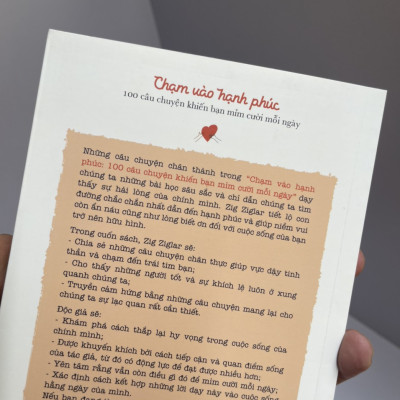 Chạm vào hạnh phúc
100 câu chuyện khiến bạn mỉm cười mỗi ngày
Những câu chuyện chân thành trong "Chạm vào hạnh
phúc: 100 câu chuyện khiến bạn mỉm cười mỗi ngày" dạy
chúng ta những bài học sâu sắc và chỉ dẫn chúng ta tìm
thấy sự hài lòng của chính mình. Zig Ziglar tiết lộ con
đường chắc chắn nhất dẫn đến hạnh phúc và giúp niềm vui
còn ẩn náu cũng như lòng biết ơn đối với cuộc sống của bạn
trở nên hữu hình.
Trong cuốn sách, Zig Ziglar sẽ:
- Chia sẻ những câu chuyện chân thực giúp vực dậy tinh
thần và chạm đến trái tim bạn;
- Cho thấy những người tốt và sự khích lệ luôn ở xung
quanh chúng ta;
- Truyền cảm hứng bằng những câu chuyện mang lại cho
chúng ta sự lạc quan rất cần thiết.
Độc giả sẽ:
- Khám phá cách thắp lại hy vọng trong cuộc sống của
chính mình;
- Được khuyến khích bởi cách tiếp cận và quan điểm sống
của tác giả, từ đó có động lực để đạt được nhiều hơn;
- Yên tâm rằng vẫn còn điều gì đó để mỉm cười mỗi ngày;
- Xác định cách kết hợp những lời dạy này vào cuộc sống
hằng ngày của mình.
Nếu bạn đang